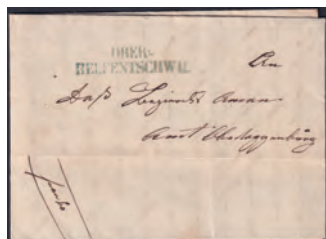 OBER-
HELFENTSCHWIL
An
Daß Bezirks Aman
Amt Obertoggenburg
franko